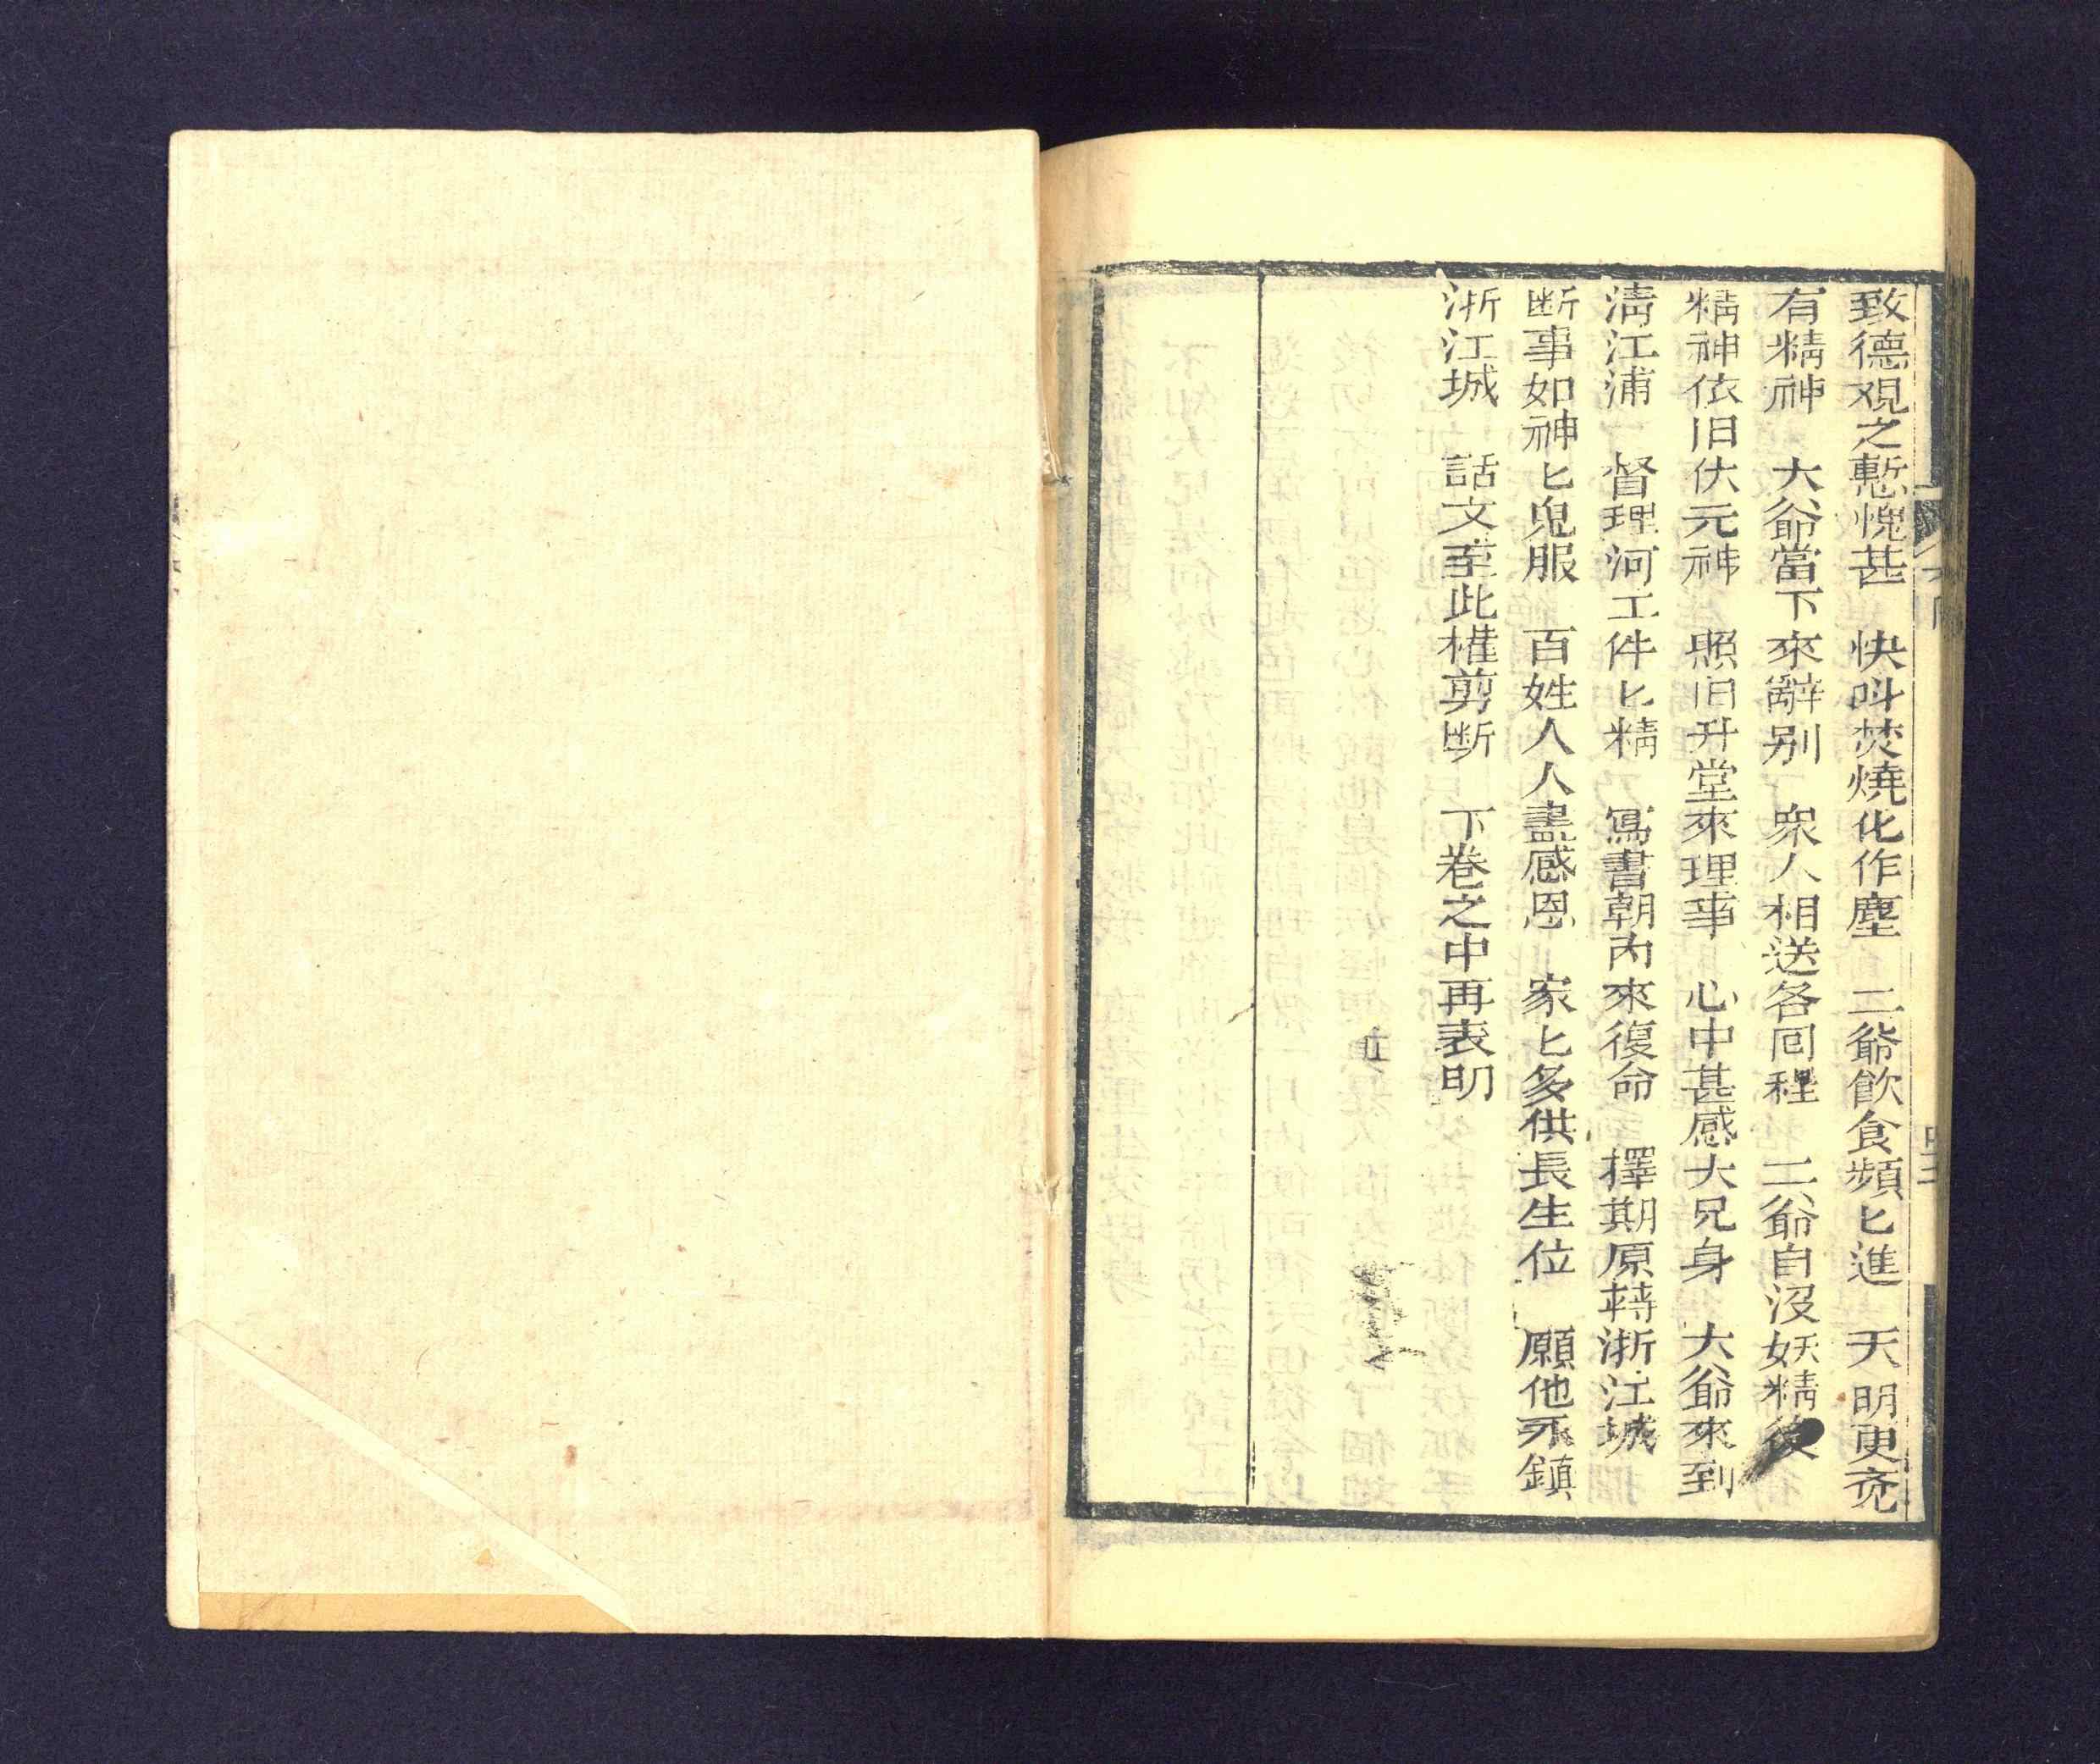 致德观之慙愧甚　快呌焚燒化作塵　二爺飮食頻匕進　天明更
有精神　大爺當下來辭别　衆人相送各囘程　二爺自没妖精後
精神依旧伏元神　照旧升堂來理事　心中甚感大兄身　大爺來到
淸江浦　督理河工件匕精　寫書朝内來復命　擇期原轉浙江城
断事如神匕鬼服　百姓人人盡感恩　家匕多供長生位　願他
浙江城　話文至此權剪断　下卷之中再表明